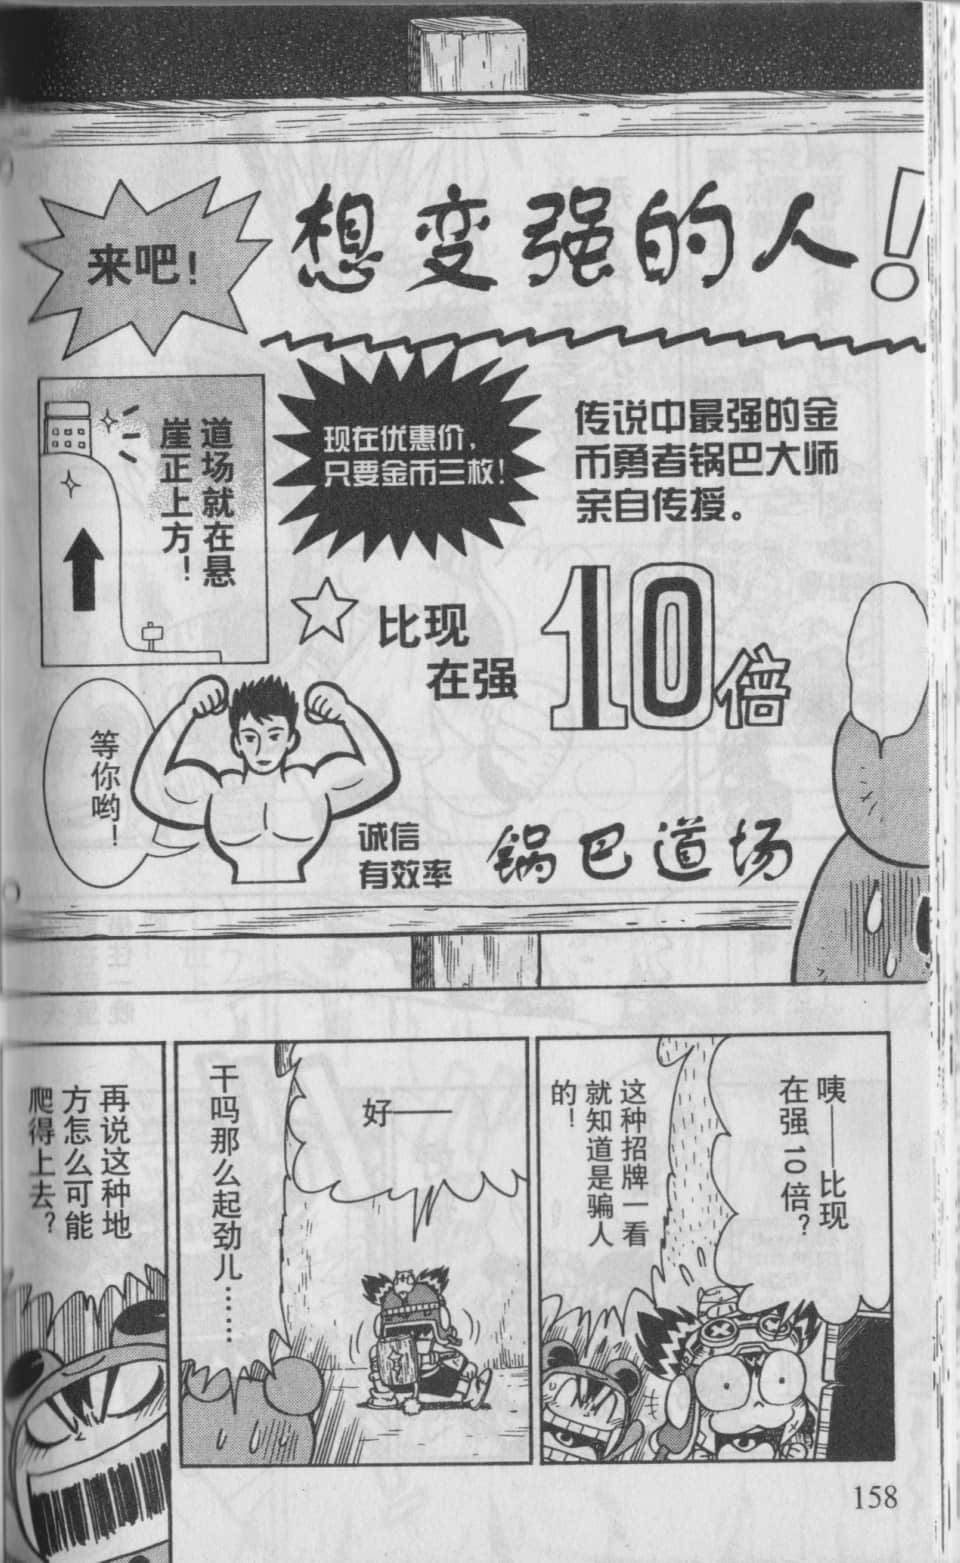 想变强的人！
来吧！
现在优惠价，
只要金币三枚！
传说中最强的金
币勇者锅巴大师
亲自传授。
道场就在悬
崖正上方！
比现
在强
10倍
等你哟！
诚信
有效率
锅巴道场
咦——比现
在强10倍？
这种招牌一看
就知道是骗人
的！
好——
干吗那么起劲儿……
再说这种地
方怎么可能
爬得上去？
158